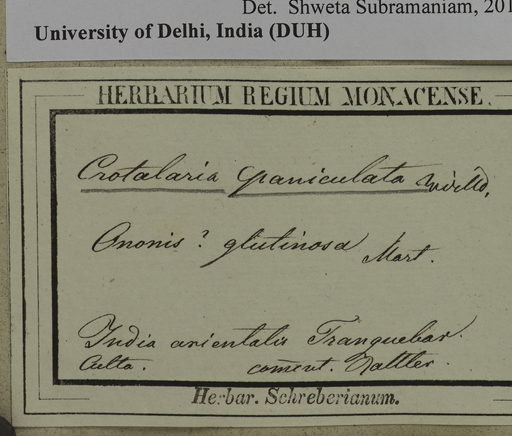 Det. Shweta Subramaniam, 201
University of Delhi, India (DUH)
HERBARIUM REGIUM MONACENSE.
Crotalaria paniculata Willd,
Ononis? glutinosa Mart.
India orientalis Tranquebar.
Culta. com̄unt. Rottler.
Herbar. Schreberianum.